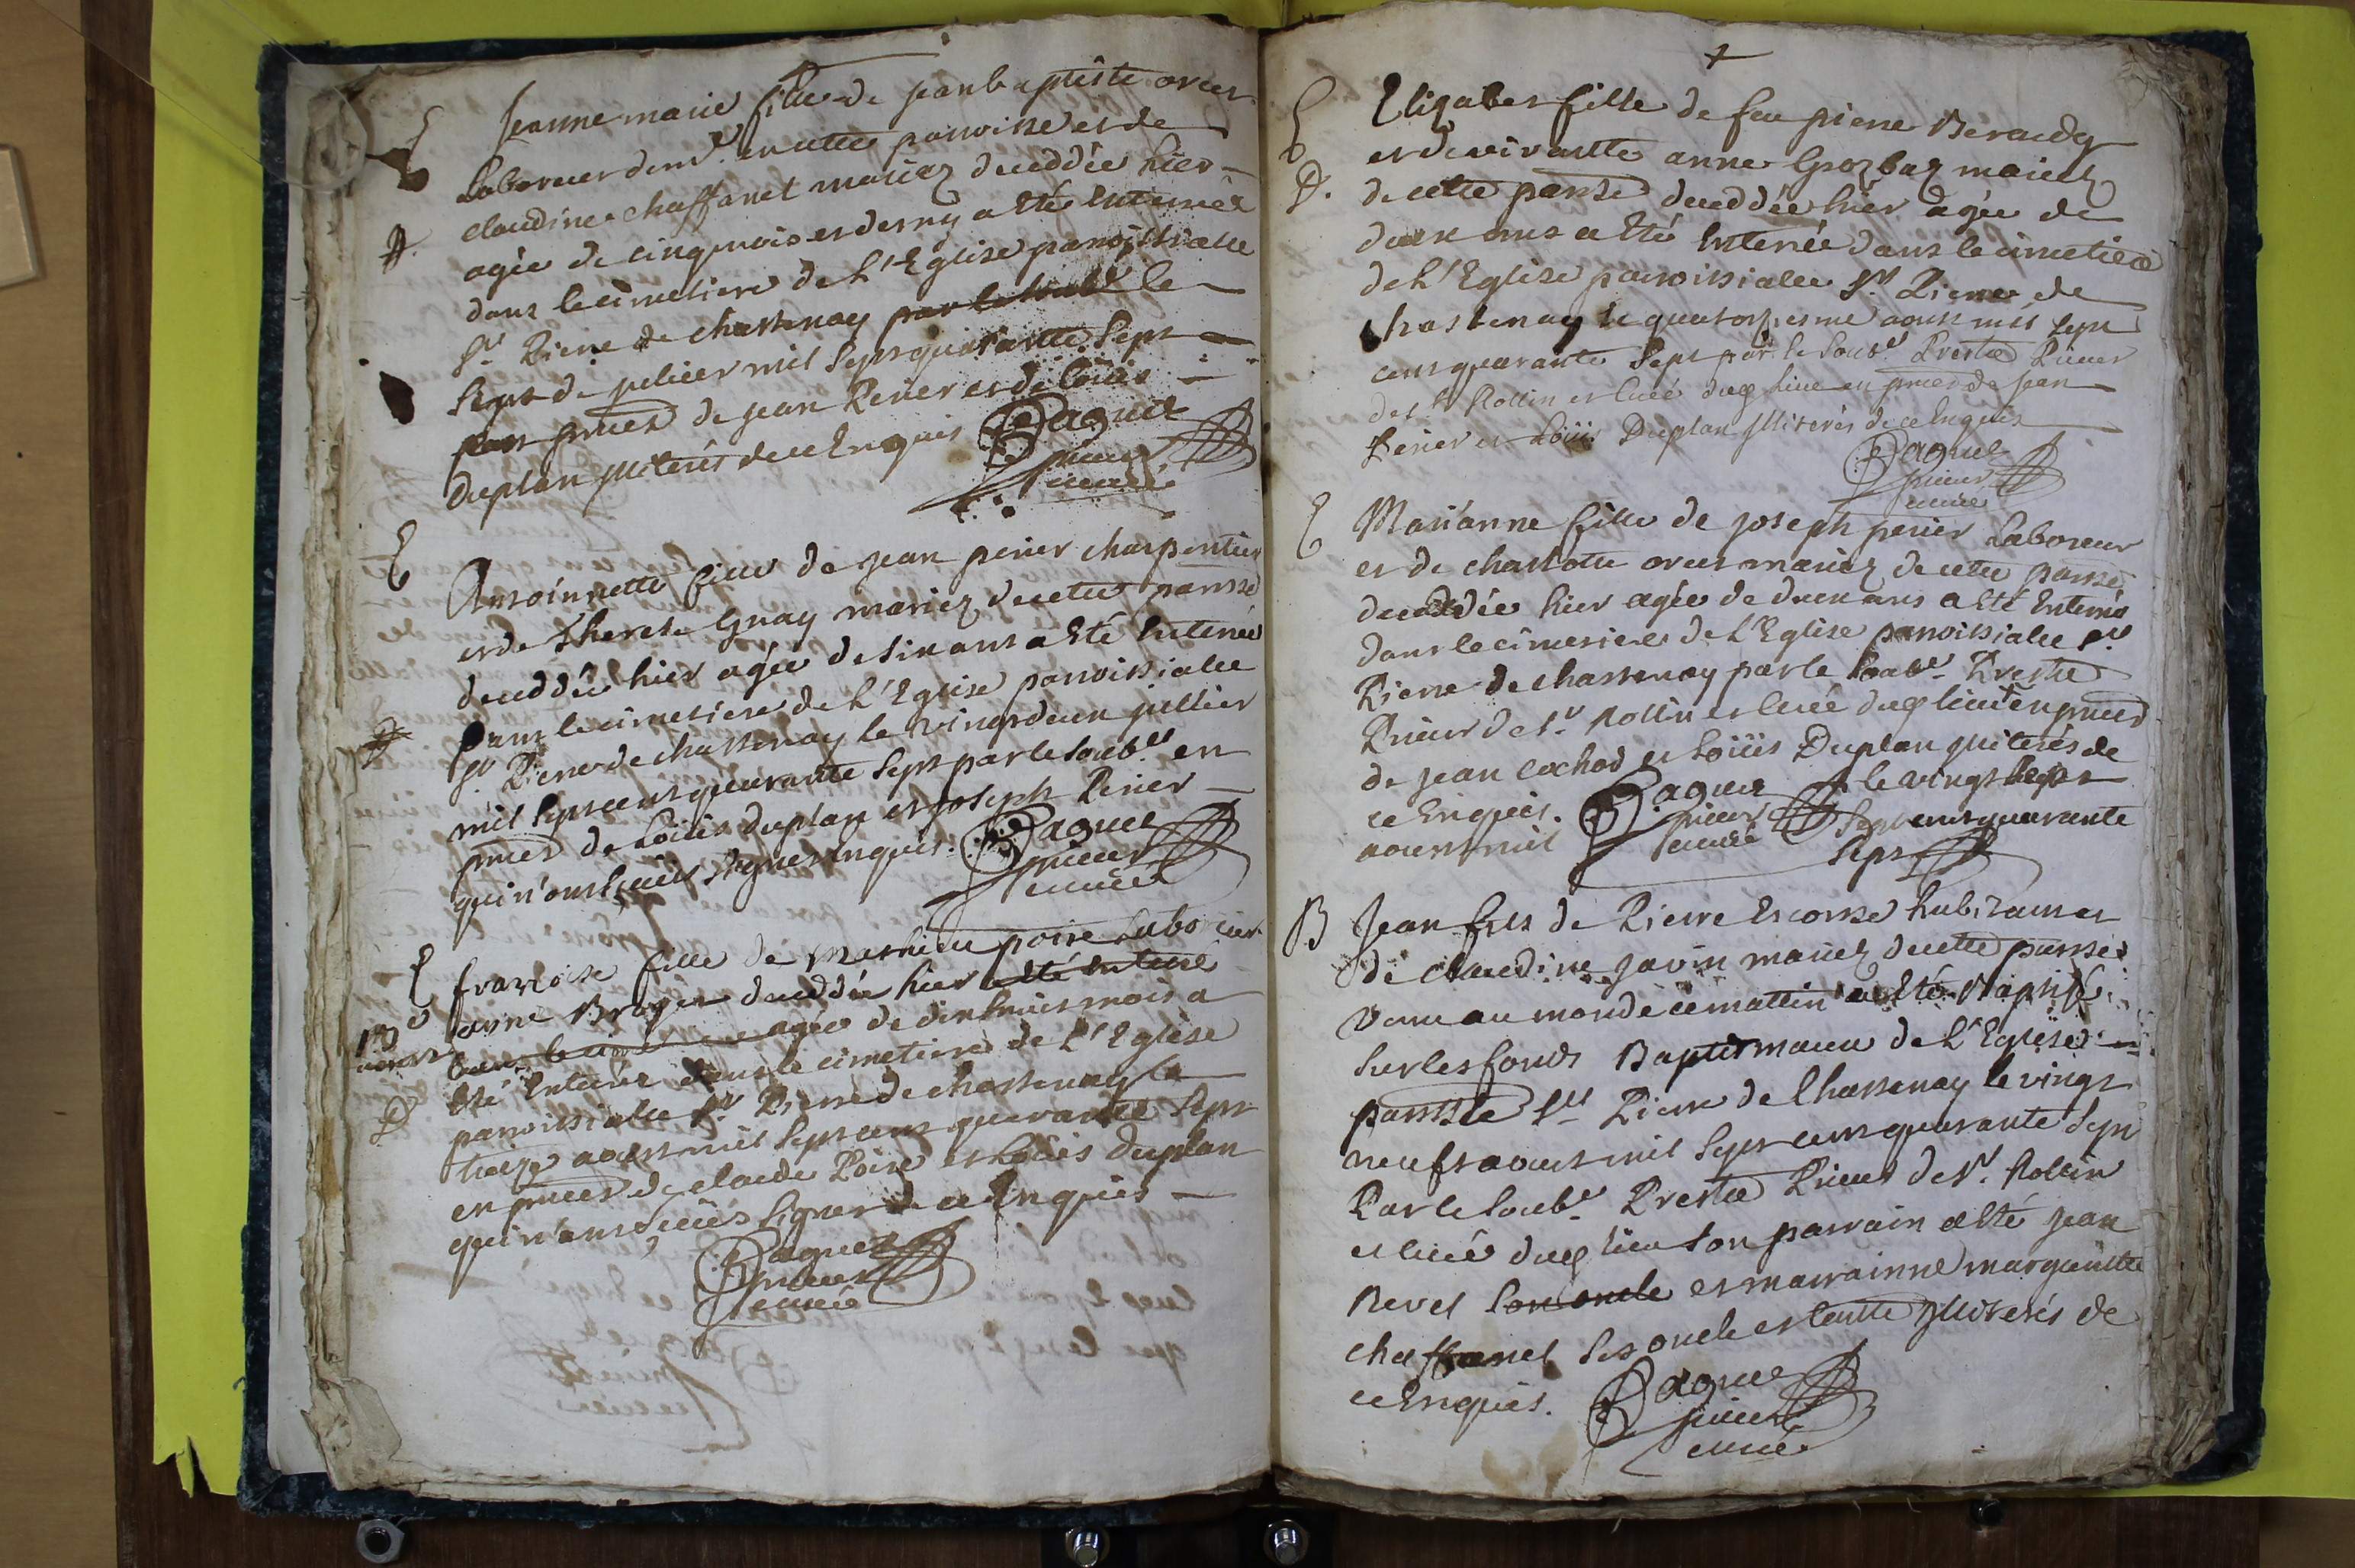 E Jeanne marie fille de jean baptiste orcet
Laboreur demt. en cette parroisse et de
claudine chaffanel mariez deceddée hier
agée de cinq mois et demy a été Enterrée
dans le cimetiere de L'Eglise parroissialle
St. Pierre de chassenay par le soubt le
sept de jullier mil sept quarante sept
pnces de jean Perier et de Loüis
duplan illiterés de ce Enquis Paquet
prieur
curé
E Antoinnette fille de jean perier charpentier
et de Therese Gnay mariez de cette parrsse
deceddée hier agée de six ans a Eté Enterrée
dans le cimetiere de L'Eglise parroissialle
St. Pierre de chassenay le vingt deux jullier
mil sept cent quarante sept par le soubt. en
pnces de Loüis duplan et joseph Perier
qui n'ont sceus signer enquis. Paquet
prieur
curé
E francoise fille de mathieu poire Laboreur
anne Broyer deceddée hier a Eté enterré
dans le cimetiere agée de dix huit mois a
Eté Enterrée dans le cimetiere de L'Eglise
parroissialle St. Pierre de chassenay le
treize aoust mil sept cent quarante sept
en pnces de claude Poire et Loüis duplan
qui n'ont sceüs signer de ce Enquis
Paquet
prieur
curé
E Elizabet fille de feu pierre Beraudy
et de vivante anne Grozbaz mariez
D. de cette parrsse deceddée hier agée de
deux ans a Eté Enterrée dans le cimetiere
de L'Eglise parroissialle St. Pierre de
chastenay le quatorziesme aoust mil sept
cent quarante sept par le soubt. Prestre Prieur
de St Rollin et curé dud lieu en pnces de jean
Perier et Loüis Duplan illiterés de ce Enquis
Paquet
prieur
curé
E Marianne fille de joseph perier Laboreur
et de charlotte orcet mariez de cette parrsse
deceddée hier agée de deux ans a Eté Enterré
dans le cimetiere de L'Eglise parroissialle St.
Pierre de chassenay par le soubt. Prestre
Prieur de St. Rollin et curé dud lieu en pnces
de jean cochod et Loüis Duplan illiterés de
ce Enquis. Paquet le vingt sept
aoust mil prieur curé sept cent quarante
sept
B Jean fils de Pierre Escosse habitant et
de claudine javin mariez de cette parrsse
venu au monde ce mattin a Eté Baptisé
sur les fonds Baptismaux de L'Eglise
parrsle St. Pierre de Chassenay le vingt
neuf aoust mil sept cent quarante sept
Par le soubt. Prestre Prieur de St. Rollin
et curé dud lieu son parrain a Eté jean
Revel son oncle et marrainne margueritte
chaffanel ses oncle et tante illiterés de
ce Enquis. Paquet
prieur
curé